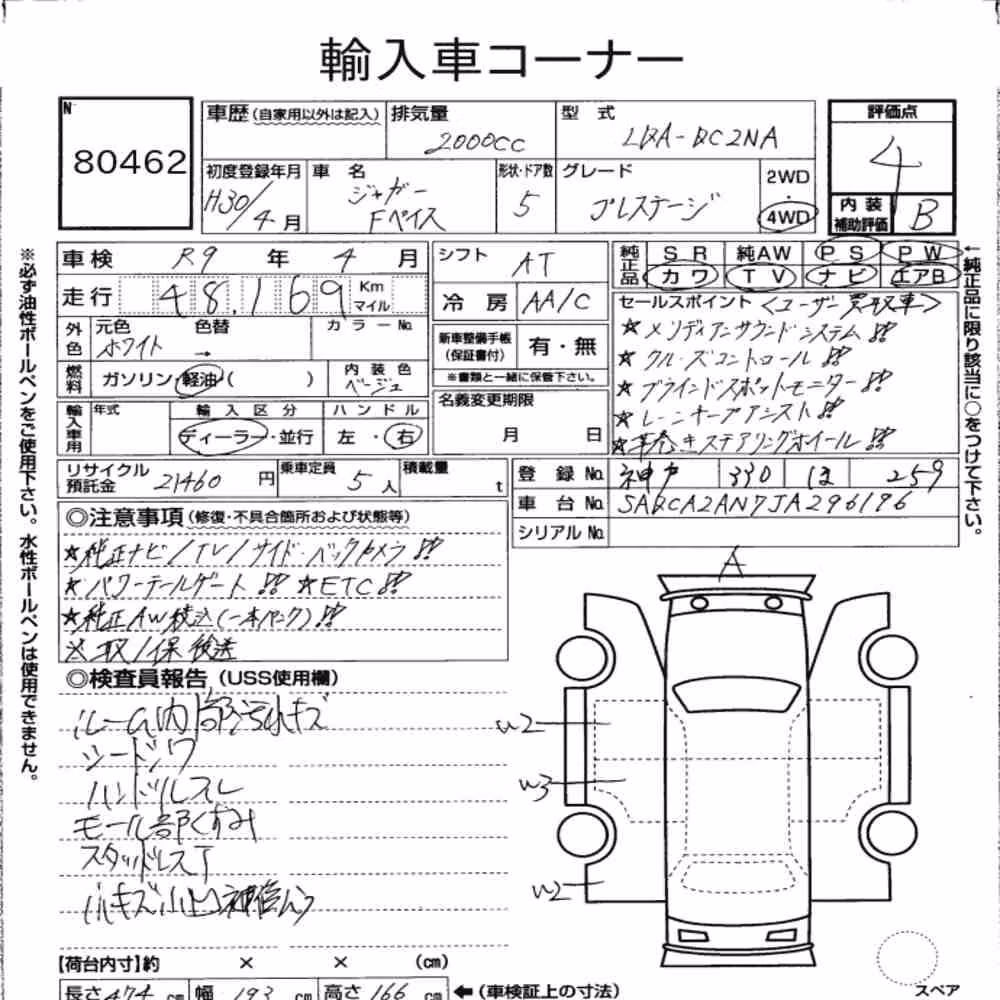 輸入車コーナー
N
80462
車歴(自家用以外は記入)
排気量
2000CC
型式
LDA-DC2NA
評価点
4
初度登録年月
H30/4月
車名
ジャガー
Fペイス
形状・ドア数
5
グレード
プレステージ
2WD
・
4WD
内装
補助評価
B
車検 R9年 4月
走行 48,169 Km マイル
外色 元色 ホワイト 色替 → カラーNo.
燃料 ガソリン・軽油・( ) 内装色 ベージュ
輸入車用 年式 輸入区分 ディーラー・並行 ハンドル 左・右
シフト AT
冷房 AA/C
新車整備手帳(保証書付) 有・無
※書類と一緒に保管下さい。
名義変更期限
月 日
純正品 SR 純AW PS PW
カワ TV ナビ エアB
セールスポイント <ユーザー買取車>
☆メリディアンサウンドシステム!!
☆クルーズコントロール!!
☆ブラインドスポットモニター!!
☆レーンキープアシスト!!
☆革巻きステアリングホイール!!
リサイクル預託金 21460円
乗車定員 5人
積載量 t
登録No. 神戸 330 ほ 259
車台No. SADCA2AN7JA296196
シリアルNo.
◎注意事項(修復・不具合箇所および状態等)
☆純正ナビ/TV/サイド・バックカメラ!!
☆パワーテールゲート!! ☆ETC!!
☆純正AW積込(一本パンク)!!
※取/保 後送
◎検査員報告(USS使用欄)
ルーム内部汚れキズ
シートシワ
ハンドルスレ
モール部くすみ
スタッドレスT
小キズ小凹
A
W2
W3
W2
【荷台内寸】約 × × (cm)
長さ474cm 幅193cm 高さ166cm
←(車検証上の寸法)
スペア
※必ず油性ボールペンをご使用下さい。水性ボールペンは使用できません。
←純正品に限り該当に○をつけて下さい。